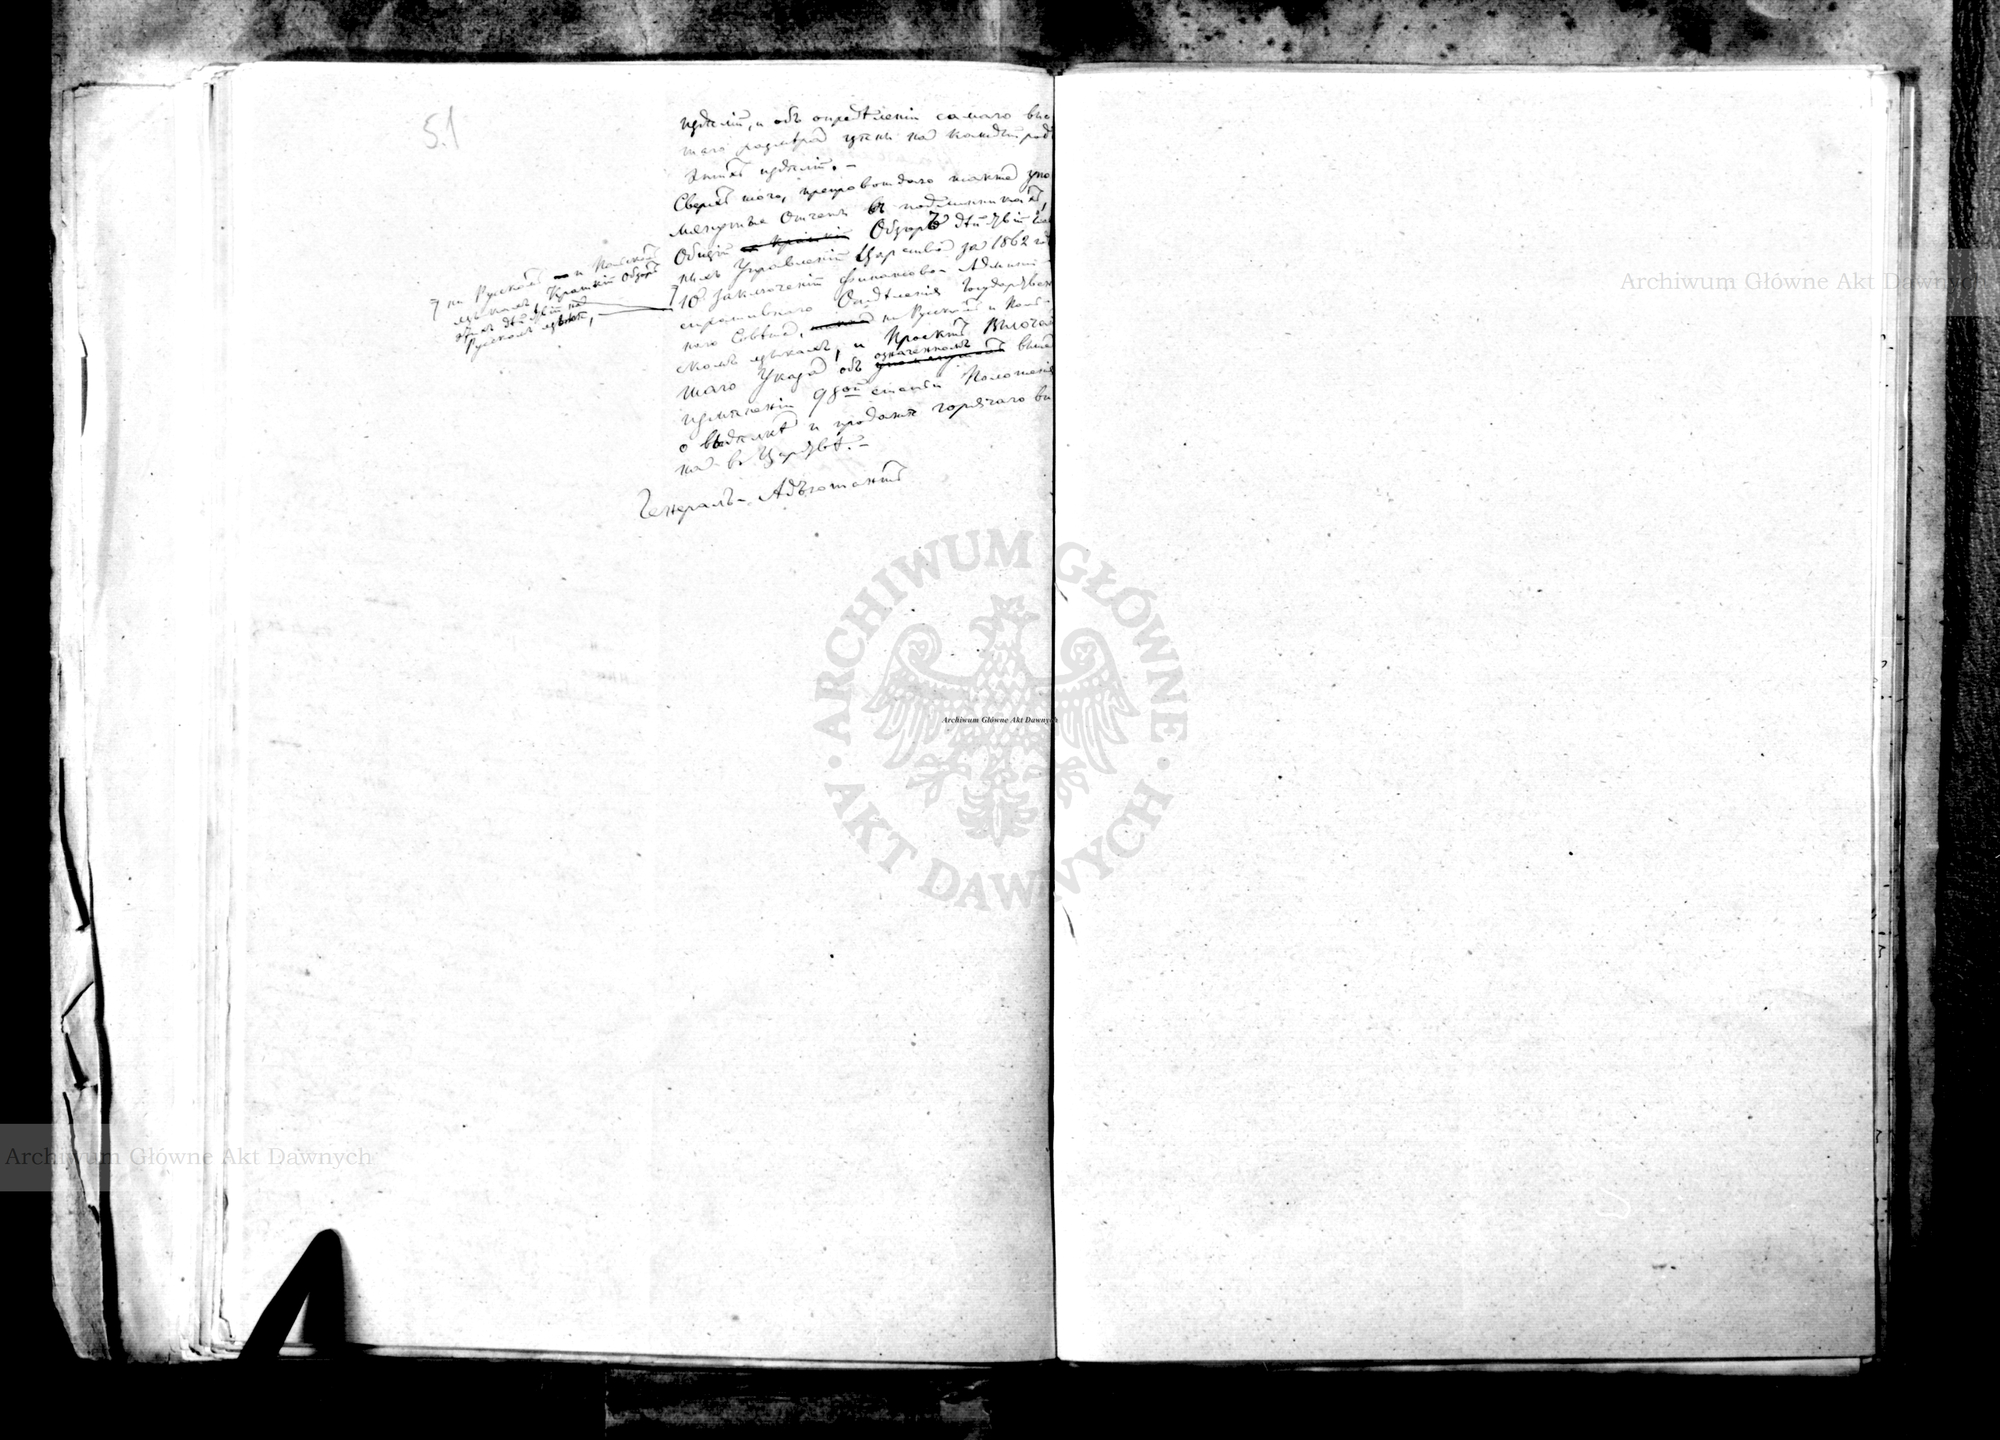 51
издѣлій, и объ опредѣленіи самаго выс
шаго размѣра цѣны на каждый родъ
этихъ издѣлій. –
Сверхъ того, препровождаю также упо
мянутые Отчеты въ подлинникахъ,
Общій и краткій Обзоръ дѣйствій
нымъ Управленій Царства за 1862 годъ
10 заключеній Финансово-Админи-
стративнаго Отдѣленія Государствен
наго Совѣта, на Русскомъ и Поль-
скомъ языкахъ, и Проектъ Высочай
шаго Указа объ означенномъ выше
измѣненіи 98ой статьи Положенія
о выдѣлкѣ и продажѣ горячаго ви
на въ Царствѣ. –
Генералъ-Адъютантъ
на Русскомъ и Польскомъ
языкахъ, Краткій Обзоръ
этихъ дѣйствій на
Русскомъ языкѣ,
Archiwum Główne Akt Dawnych
ARCHIWUM GŁÓWNE
AKT DAWNYCH
Archiwum Główne Akt Dawnych
Archiwum Główne Akt Dawnych